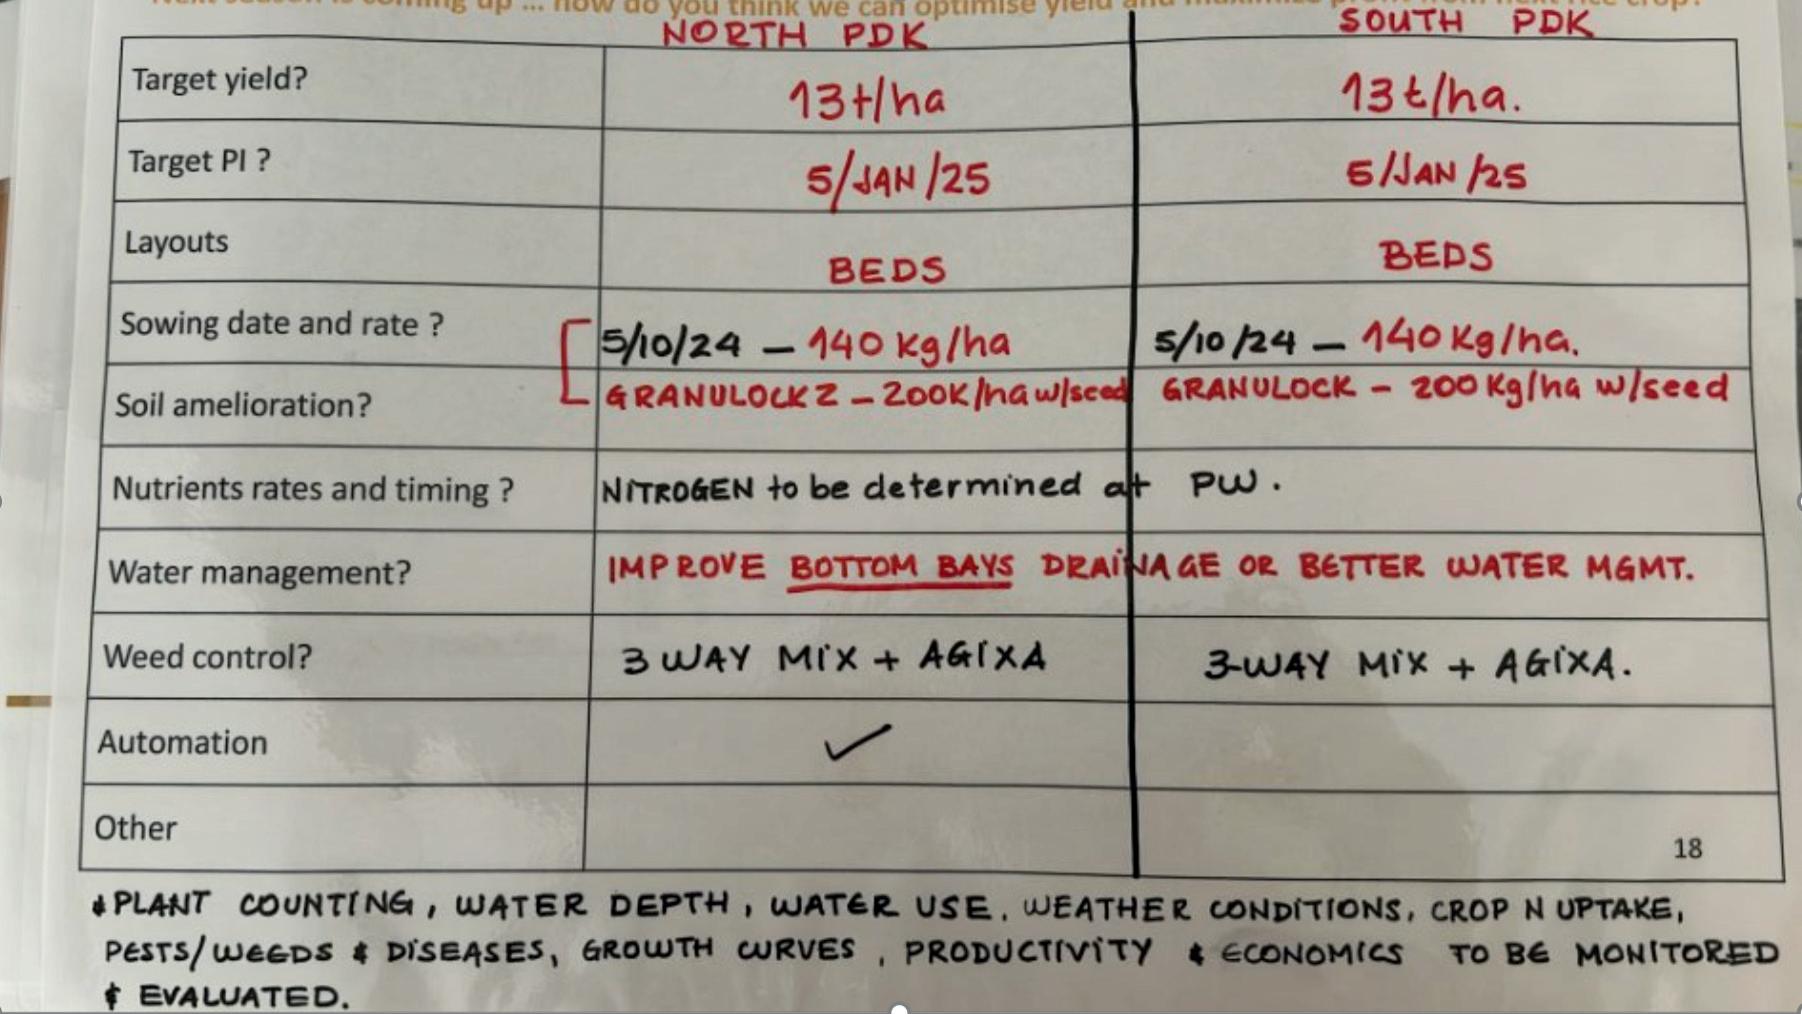 Next season is coming up ... how do you think we can optimise yield and maximise profit from next rice crop?
NORTH PDK SOUTH PDK
Target yield? 13t/ha 13t/ha.
Target PI ? 5/JAN/25 5/JAN/25
Layouts BEDS BEDS
Sowing date and rate ? 5/10/24 – 140 Kg/ha 5/10/24 – 140 Kg/ha.
Soil amelioration? GRANULOCK Z – 200K/ha w/seed GRANULOCK – 200 Kg/ha w/seed
Nutrients rates and timing ? NITROGEN to be determined at PW.
Water management? IMPROVE BOTTOM BAYS DRAINAGE OR BETTER WATER MGMT.
Weed control? 3 WAY MIX + AGIXA 3-WAY MIX + AGIXA.
Automation ✓
Other
18
& PLANT COUNTING, WATER DEPTH, WATER USE. WEATHER CONDITIONS, CROP N UPTAKE,
PESTS/WEEDS & DISEASES, GROWTH CURVES, PRODUCTIVITY & ECONOMICS TO BE MONITORED
& EVALUATED.